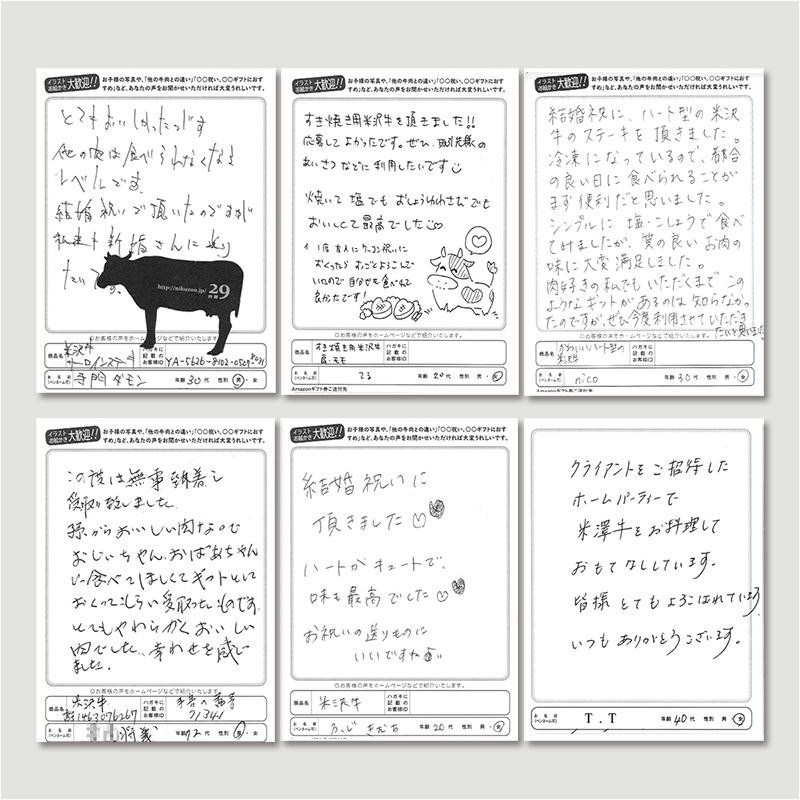 イラスト お絵かき 大歓迎!!
お子様の写真や、「他の牛肉との違い」「〇〇祝い、〇〇ギフトにおす
すめ」など、あなたの声をお聞かせいただければ大変うれしいです。
とてもおいしかったです
他の肉は食べられなくなる
レベルです。
結婚祝いで頂いたのですが
私達も新婚さんに送り
たいです。
http://nikuzoo.jp/ 29
肉贈
◎お客様の声をホームページなどで紹介いたします。
商品名 米沢牛 サーロインステーキ
ハガキに記載のお客様ID YA-5626-8102-0529-
お名前(ペンネーム可) 寺門ダモン 年齢 30代 性別 男・女
イラスト お絵かき 大歓迎!!
お子様の写真や、「他の牛肉との違い」「〇〇祝い、〇〇ギフトにおす
すめ」など、あなたの声をお聞かせいただければ大変うれしいです。
すき焼き用米沢牛を頂きました!!
応募してよかったです。ぜひ、取引先様の
あいさつなどに利用したいです
焼いて塩でもおしょうゆわさびでも
おいしくて最高でした
1度友人にケッコン祝いに
おくったらすっごとよろこんで
いたので自分でも食べれて
良かたです!
◎お客様の声をホームページなどで紹介いたします。
商品名 すき焼き用米沢牛 肩・モモ
ハガキに記載のお客様ID
お名前(ペンネーム可) てる 年齢 20代 性別 男・女
Amazonギフト券ご送付先
イラスト お絵かき 大歓迎!!
お子様の写真や、「他の牛肉との違い」「〇〇祝い、〇〇ギフトにおす
すめ」など、あなたの声をお聞かせいただければ大変うれしいです。
結婚祝に、ハート型の米沢
牛のステーキを頂きました。
冷凍になっているので、都合
の良い日に食べられることが
まず便利だと思いました。
シンプルに塩・こしょうで食べ
てみましたが、質の良いお肉の
味に大変満足しました。
肉好きの私でもいただくまでこの
ようなギットがあるのは知らなかっ
たのですが、ぜひ今度利用させていただき
たいと思いました
◎お客様の声をホームページなどで紹介いたします。
商品名 かわいいハート型の 米沢牛
ハガキに記載のお客様ID
お名前(ペンネーム可) nico 年齢 30代 性別 男・女
Amazonギフト券ご送付先
イラスト お絵かき 大歓迎!!
お子様の写真や、「他の牛肉との違い」「〇〇祝い、〇〇ギフトにおす
すめ」など、あなたの声をお聞かせいただければ大変うれしいです。
この度は無事到着し
受取り致しました。
孫からおいしい肉なので
おじいちゃん、おばあちゃん
に食べてほしくてギフトとして
おくってもらい受取ったものです。
とてもやわらかくおいしい
肉でした、幸わせを感じ
ました。
◎お客様の声をホームページなどで紹介いたします。
商品名 米沢牛 1463076267
ハガキに記載のお客様ID 71341
お名前(ペンネーム可) 年齢 72代 性別 男・女
イラスト お絵かき 大歓迎!!
お子様の写真や、「他の牛肉との違い」「〇〇祝い、〇〇ギフトにおす
すめ」など、あなたの声をお聞かせいただければ大変うれしいです。
結婚祝いに
頂きました
ハートがキュートで、
味も最高でした
お祝いの送りものに
いいですね♪
◎お客様の声をホームページなどで紹介いたします。
商品名 米沢牛
ハガキに記載のお客様ID
お名前(ペンネーム可) ふじ きむち 年齢 20代 性別 男・女
Amazonギフト券ご送付先
クライアントをご招待した
ホームパーティーで
米澤牛をお料理して
おもてなししています。
皆様とてもよろこばれています
いつもありがとうございます。
お名前(ペンネーム可) T.T 年齢 40代 性別 男・女